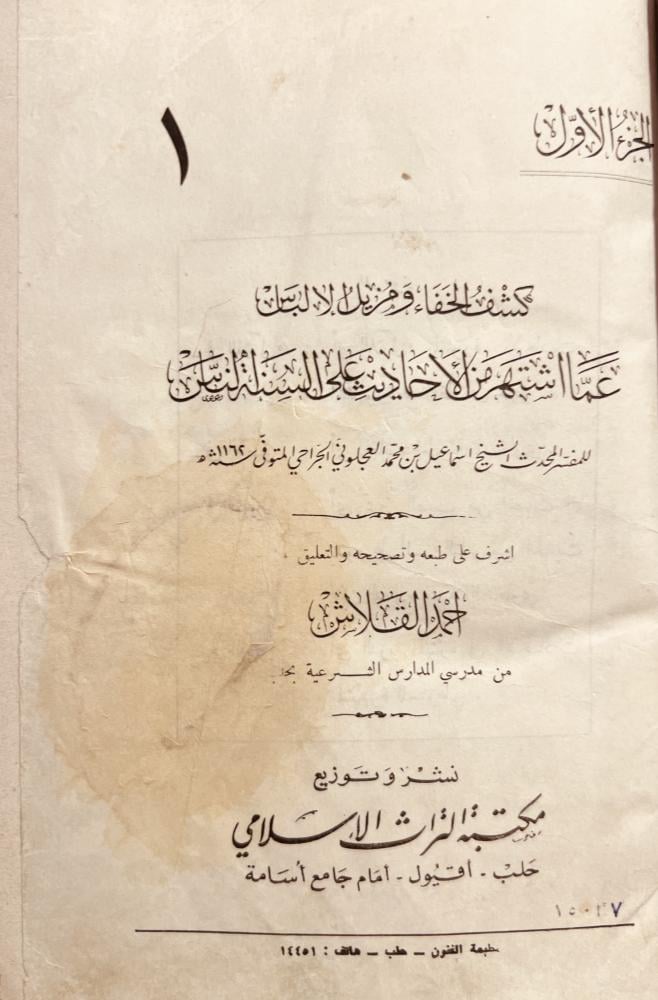 الجزء الأول
١
كشف الخفاء ومزيل الالباس
عمّا اشتهر من الأحاديث على السنة الناس
للمفسر المحدث الشيخ اسماعيل بن محمد العجلوني الجراحي المتوفى سنة ١١٦٢ هـ
اشرف على طبعه وتصحيحه والتعليق
احمد القلاش
من مدرسي المدارس الشرعية بحلب
نشر وتوزيع
مكتبة التراث الإسلامي
حلب - أقيول - أمام جامع أسامة
مطبعة الفنون - حلب - هاتف : ١٤٤٥١